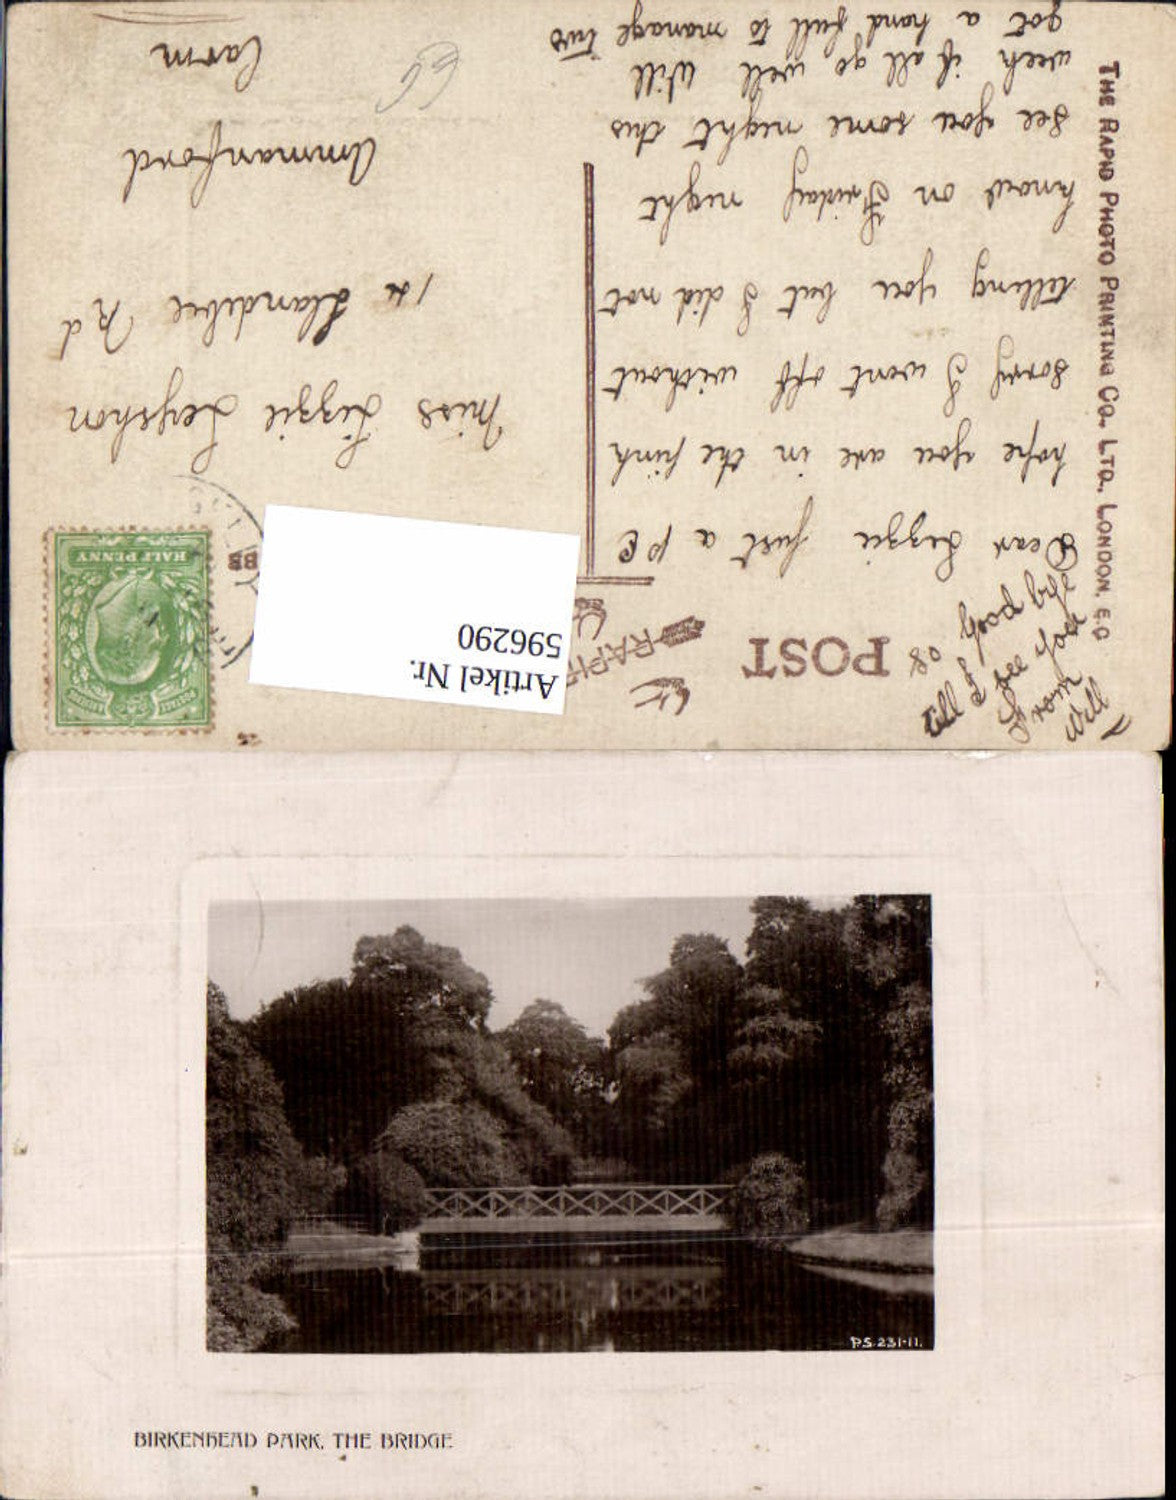 POST
RAPID
HALF PENNY
POSTAGE
Artikel Nr.
596290
Dear Lizzie just a pc
hope you are in the pink
sorry I went off without
telling you but I did not
know on Friday night
see you some night this
week if all go well Will
got a hand full to manage two
From
Will
Miss Lizzie Leyshon
Llandebie Rd
Ammanford
Carm
THE RAPID PHOTO PRINTING CO., LTD., LONDON, E.C
P.S.231-11.
BIRKENHEAD PARK, THE BRIDGE